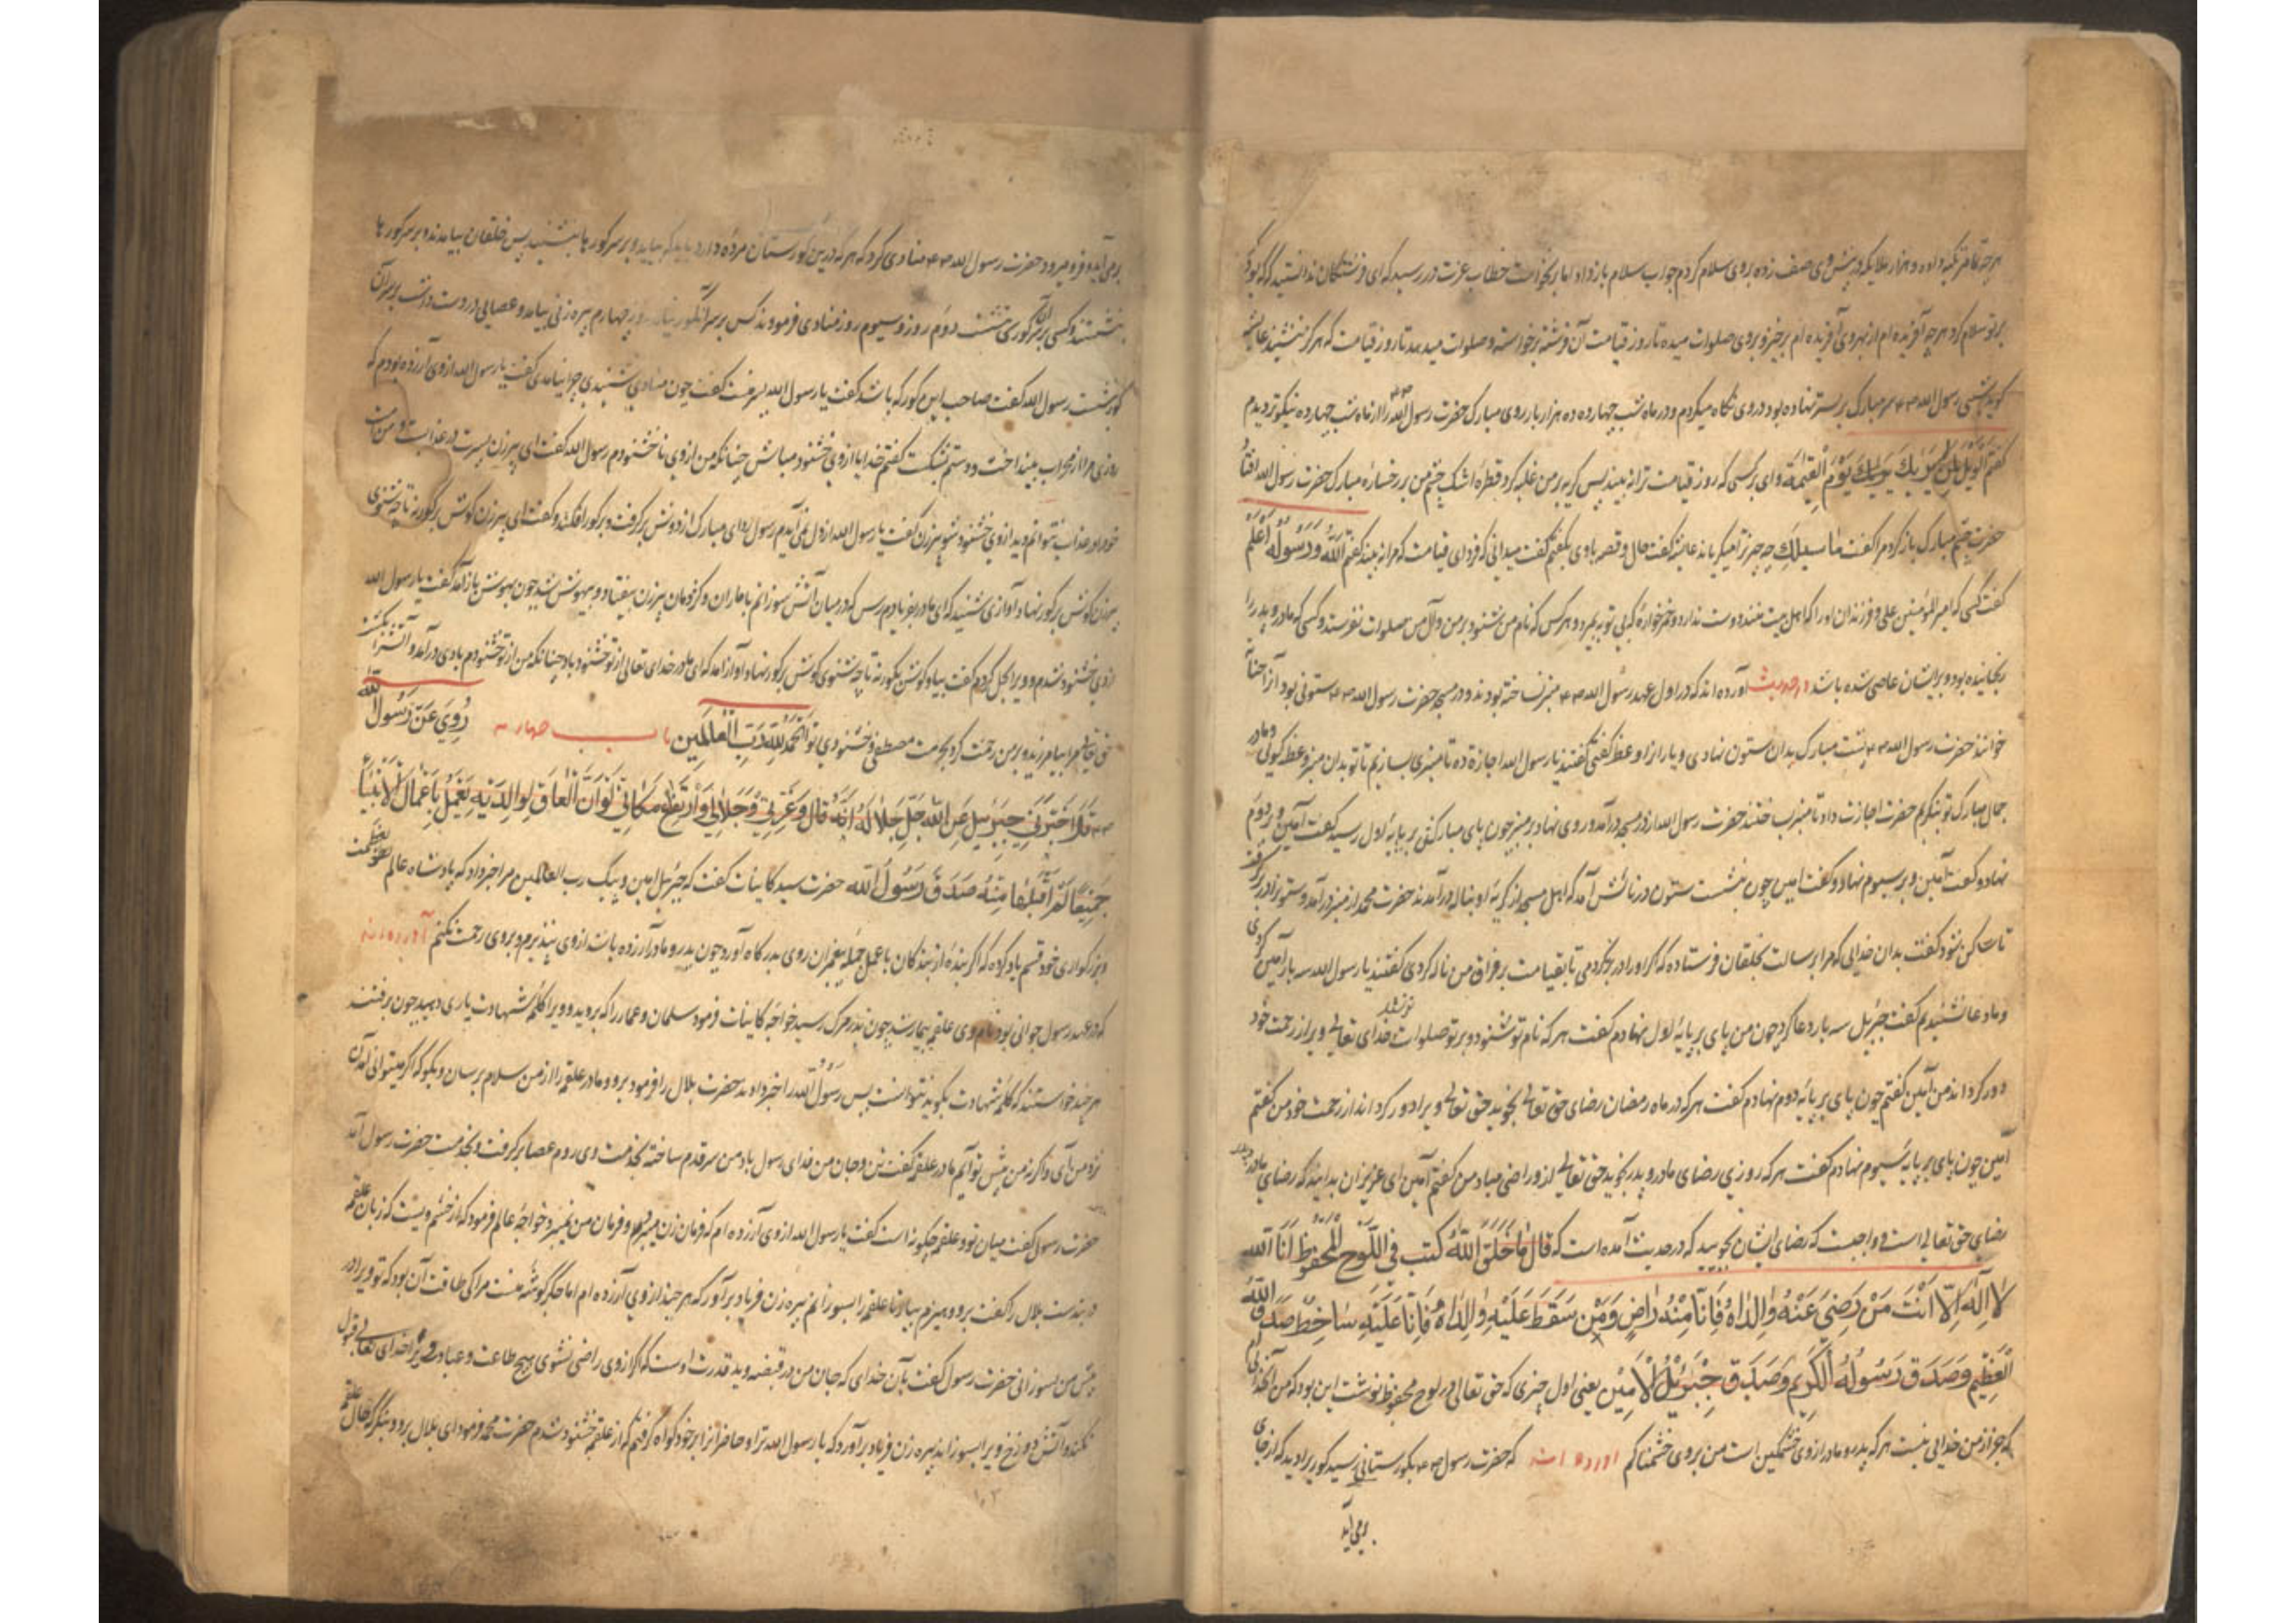 بر تو سلام کرد هرچه آفریده‌ام از بهر وی آفریده‌ام برخیز و بر وی صلوات میده تا روز قیامت آن فرشته برخواسته و صلوات میدهد تا روز قیامت که هرگز ننشیند عایشه
گوید شبی رسول الله سر مبارک بر بستر نهاده بود در وی نگاه میکردم و در ماه شب چهارده ده هزار بار روی مبارک حضرت رسول الله را از ماه شب چهارده نیکوتر دیدم
گفتم الویل لمن یوم القیمة وای بر کسی که روز قیامت ترا نه بیند پس گریه بر من غلبه کرد قطره اشک چشم من بر رخساره مبارک حضرت رسول الله افتاد
حضرت چشم مبارک باز کرد مرا گفت چه چیز ترا میگریاند عایشه گفت حال و قصه با وی بگفتم گفت میدانی که فردای قیامت که مرا نه بیند گفتم الله ورسوله اعلم
گفت کسی که امیر المؤمنین علی و فرزندان او را که اهل بیت منند دوست ندارد و خمرخواره که بی توبه بمیرد و هر کس که نام من بشنود و بر من و آل من صلوات نفرستد و کسی که مادر و پدر را
رنجانیده بود و بر ایشان عاصی شده باشد در حدیث آورده اند که در اول عهد رسول الله منبر نساخته بودند و در مسجد حضرت رسول الله ستونی بود آنرا حنانه
خوانند حضرت رسول الله پشت مبارک بدان ستون نهادی و یارانرا وعظ گفتی گفتند یا رسول الله اجازه ده تا منبری بسازیم تا تو بدان منبر وعظ گویی و ما در
جمال مبارک تو بنگریم حضرت اجازت داد تا منبر ساختند حضرت رسول الله از در مسجد درآمد و روی نهاد بر منبر چون پای مبارکش بر پایه اول رسید گفت آمین و بر دوم
نهاد و گفت آمین و بر سیوم نهاد و گفت امین چون بنشست ستون در نالش آمد که اهل مسجد از گریه او بناله درآمدند حضرت محمد از منبر درآمد و ستونرا در بر گرفت
تا ساکن شود گفت بدان خدایی که مرا برسالت بخلقان فرستاده که اگر او را در بر نگرفتمی تا بقیامت بر فراق من ناله کردی گفتند یا رسول الله سه بار آمین کردی
و ما دعا نشنیدیم گفت جبرییل سه بار دعا کرد چون من پای بر پایه اول نهادم گفت هر که نام تو شنود و بر تو صلوات نفرستد خدای تعالی ویرا از رحمت خود
دور گرداند من آمین گفتم چون پای بر پایه دوم نهادم گفت هر که در ماه رمضان رضای حق تعالی نجوید حق تعالی ویرا دور گرداند از رحمت خود من گفتم
آمین چون پای بر پایه سیوم نهادم گفت هر که روزی رضای مادر و پدر نجوید حق تعالی از و راضی مباد من گفتم آمین ای عزیزان بدانید که رضای مادر و پدر
رضای حق تعالی است و واجبست که رضای ایشان بجویید که در حدیث آمده است که قال ما خلق الله کتب فی اللوح المحفوظ انا الله
لا اله الا انت من رضی عنه والداه فانا منه راض ومن سقط علیه والداه فانا علیه ساخط صدق الله
العظیم وصدق رسوله الکریم وصدق جبرئیل الامین یعنی اول چیزی که حق تعالی در لوح محفوظ نوشت این بود که من آنخدایم
که جز از من خدایی نیست هر که پدر و مادر از وی خشمگین است من بر وی خشمناکم آورده اند که حضرت رسول بگورستانی رسید گوری را دید که از جای
برمی آید
برمی آید و فرو میرود حضرت رسول الله منادی کرد که هر که درین گورستان مرده دارد باید که بیاید و بر سر گورها بنشیند پس خلقان بیامدند و بر سر گورها
بنشستند و کسی بر سر آن گور ننشست دوم روز و سیوم روز منادی فرمودند کس بر سر آنگور نیامد روز چهارم پیره زنی بیامد و عصایی در دست داشت بر سر آن
گور نشست رسول الله گفت صاحب این گور که باشد گفت یا رسول الله پسر منست گفت چون منادی شنیدی چرا نیامدی گفت یا رسول الله از وی آزرده بودم که
روزی مرا از محراب بینداخت و دستم بشکست گفتم خدایا از وی خشنود مباش چنانکه من از وی ناخشنودم رسول الله گفت ای پیرزن پسرت در عذابست و من
خود او را در عذاب نتوانم دید از وی خشنود شو پیرزن گفت یا رسول الله از دل نمی آیدم رسول ردای مبارک از دوش برگرفت و بر گور افکند و گفت ای پیرزن گوش بر گور نه تا چه شنوی
پیرزن گوش بر گور نهاد آوازی شنید که ای مادر بفریادم رس که در میان آتش سوزانم با ماران و کژدمان پیرزن بیفتاد و بیهوش شد چون بهوش باز آمد گفت یا رسول الله
از وی خشنود شدم و ویرا بحل کردم گفت بیا و گوش بگور نه تا چه شنوی گوش بر گور نهاد آواز آمد که ای مادر خدای تعالی از تو خشنود باد چنانکه من از تو خشنودم بادی درآمد و آتش را بکشت
حق تعالی مرا بیامرزید و بر من رحمت کرد بحرمت مصطفی و خشنودی تو الحمد لله رب العالمین باب چهارم روی عن رسول الله
قد اخبرنی جبرئیل عن الله جل جلاله انه قال وعزتی وجلالی وارتفاع مکانی لو ان العاق لوالدیه یعمل باعمال الانبیا
جمیعا لم اقبلها منه صدق رسول الله حضرت سید کاینات گفت که جبرئیل امین و پیک رب العالمین مرا خبر داد که پادشاه عالم بعز و عظمت
و بزرگواری خود قسم یاد کرده که اگر بنده از بندگان با عمل جمله پیغمبران روی بدرگاه آورد چون پدر و مادر آزرده باشد از وی نپذیرم و بر وی رحمت نکنم آورده اند
که در عهد رسول جوانی بود نام وی علقمه بیمار شد چون بدر مرگ رسید خواجه کاینات فرمود سلمان و عمار را که بروید و ویرا کلمه شهادت یاری دهید چون برفتند
هر چند خواستند که کلمه شهادت بگوید نتوانست پس رسول الله را خبر دادند حضرت بلال را فرمود برو و مادر علقمه را از من سلام برسان و بگو که اگر میتوانی آمدن
نزد من آی و اگر نه من پیش تو آیم مادر علقمه گفت تن و جان من فدای رسول باد من سر قدم ساخته بخدمت وی روم عصا برگرفت و بخدمت حضرت رسول آمد
حضرت رسول گفت میان تو و علقمه چگونه است گفت یا رسول الله از وی آزرده ام که فرمان زن میبرد و فرمان من نمیبرد خواجه عالم فرمود که از خشم ویست که زبان علقمه
در بندست بلال را گفت برو و هیزم بیاور تا علقمه را بسوزانم پیره زن فریاد برآورد که هر چند از وی آزرده ام اما جگرگوشه منست مرا کی طاقت آن بود که تو ویرا در
پیش من بسوزانی حضرت رسول گفت بآن خدای که جان من در قبضه و ید قدرت اوست که اگر از وی راضی نشوی هیچ طاعت و عبادت ویرا خدای تعالی قبول
نکند و آتش دوزخ ویرا بسوزاند پیره زن فریاد برآورد که یا رسول الله ترا و حاضرانرا بر خود گواه گرفتم که از علقمه خشنود شدم حضرت محمد فرمود ای بلال برو و بنگر که حال علقمه